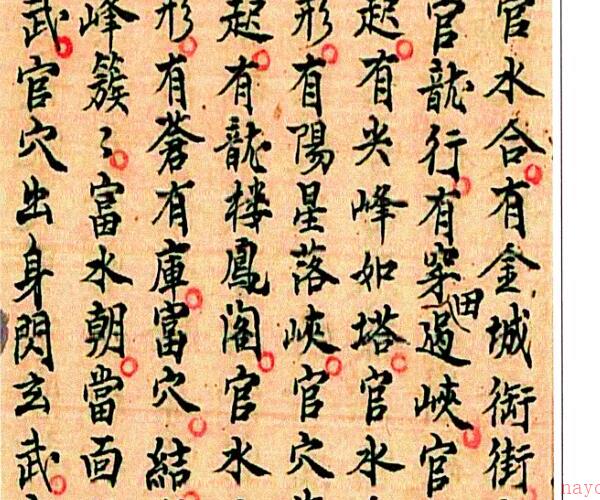 官水合有金城衙街
官龍行有穿田過峽官
起有尖峰如塔官水
形有陽星落峽官穴
起有龍樓鳳閣官水
形有蒼有庫富穴結
峰簇〻富水朝當面
武官穴出身閃玄武
nayc